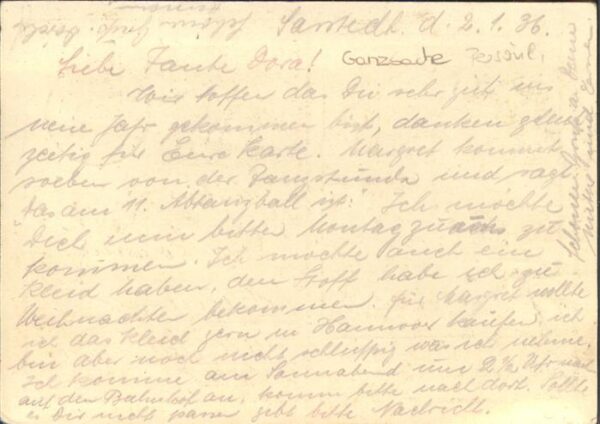 Sarstedt. d. 2.1.36.
Liebe Tante Dora! Ganzsache
Wir hoffen das Du sehr gut ins
neue Jahr gekommen bist, danken gleich
zeitig für Eure Karte. Margret kommt
soeben von der Tanzstunde und sagt
das am 11. Abtanzball ist. Ich möchte
Dich nun bitten Montag zu uns zu
kommen. Ich möchte auch ein
Kleid haben, den Stoff habe ich zu
Weihnachten bekommen. für Margret wollte
ich das Kleid gern in Hannover kaufen, ich
bin aber noch nicht schlüssig was ich nehme.
Ich komme am Sonnabend um 2 1/2 Uhr
auf den Bahnhof an, komm bitte nach dort. Sollte
es Dir nicht passen gebt bitte Nachricht.